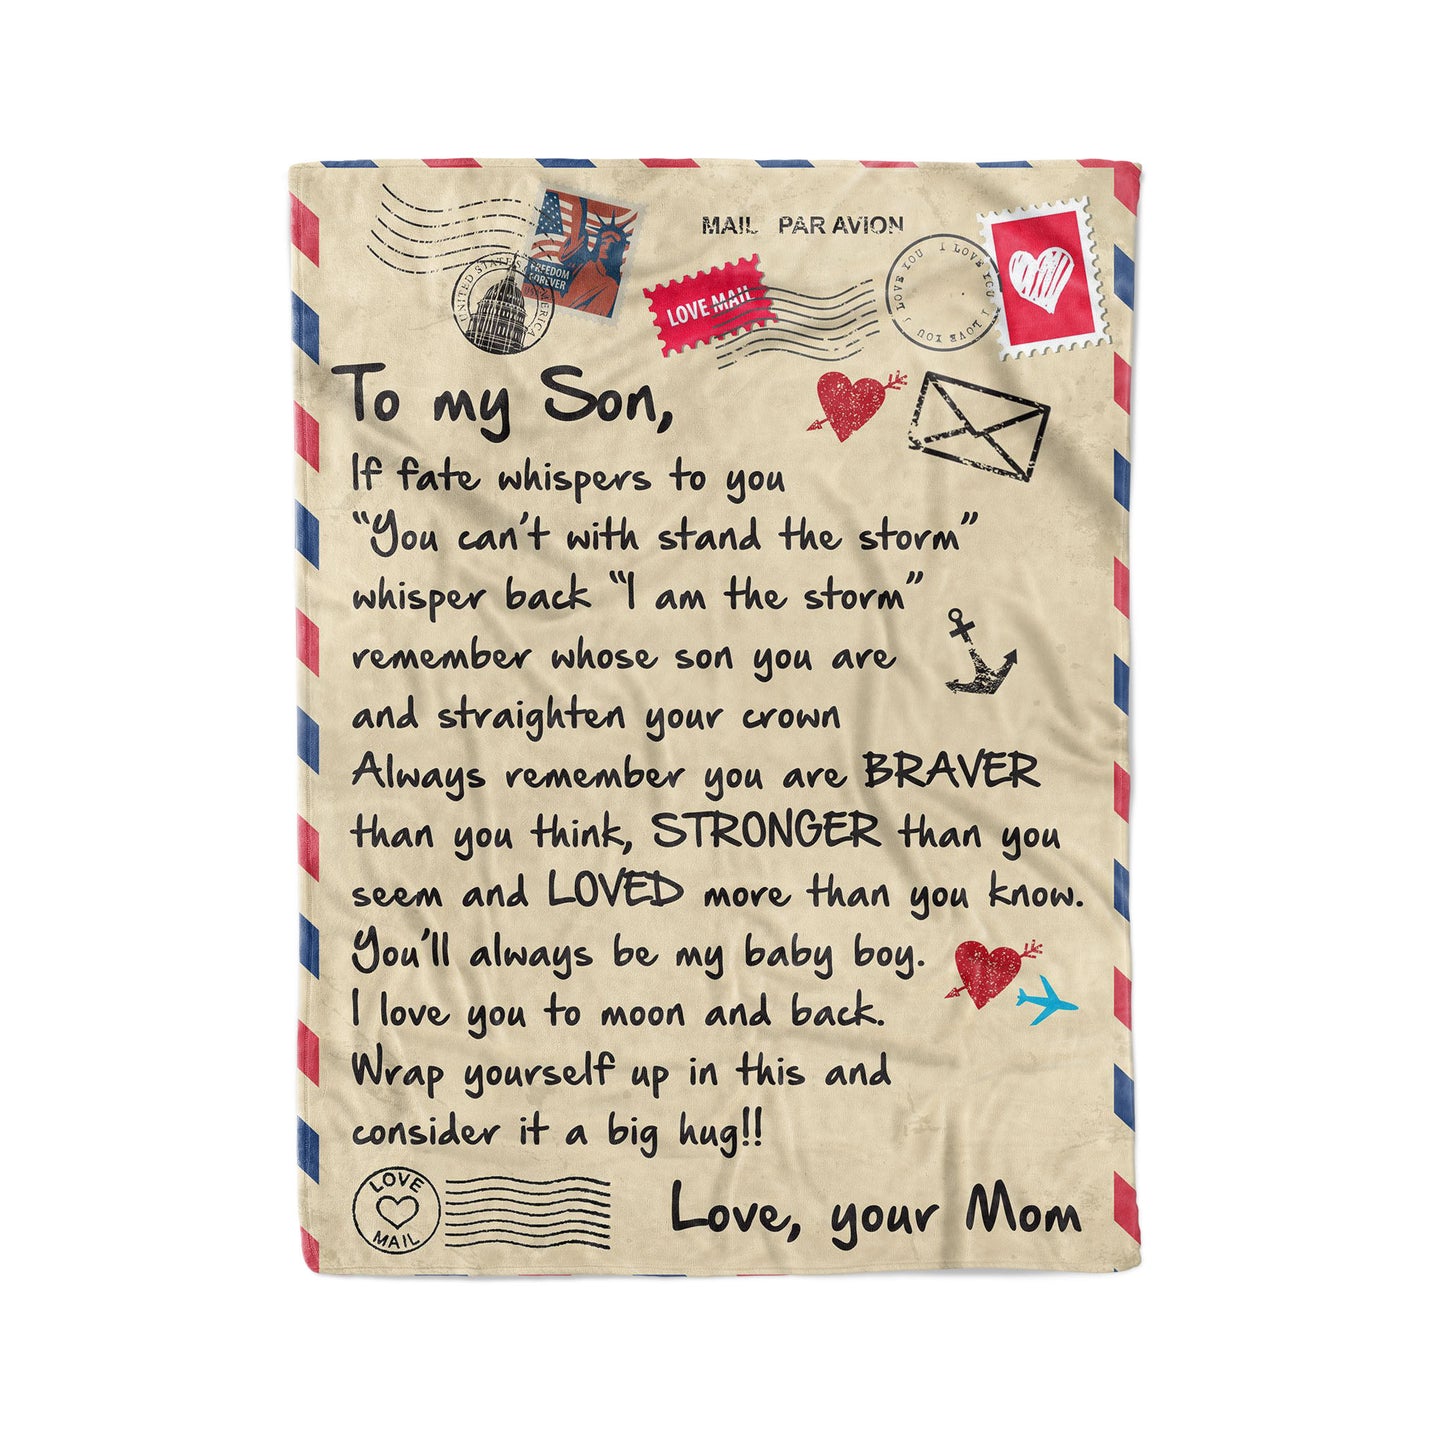 MAIL PAR AVION
FREEDOM
FOREVER
UNITED STATES AMERICA
LOVE MAIL
I LOVE YOU I LOVE YOU I LOVE YOU
To my Son,
If fate whispers to you
“You can’t with stand the storm”
whisper back “I am the storm”
remember whose son you are
and straighten your crown
Always remember you are BRAVER
than you think, STRONGER than you
seem and LOVED more than you know.
You’ll always be my baby boy.
I love you to moon and back.
Wrap yourself up in this and
consider it a big hug!!
LOVE
MAIL
Love, your Mom